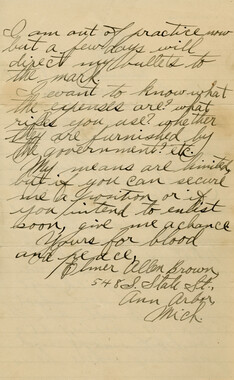 I am out of practice now
but a few days will
direct my bullets to
the mark.
I want to know what
the expenses are? what
rifles you use? whether
they are furnished by
the government? etc.
My means are limited
but if you can secure
me a position or if
you intend to enlist
soon, give me a chance
Yours for blood
and peace,
Elmer Allen Brown
548 S. State St.,
Ann Arbor
Mich